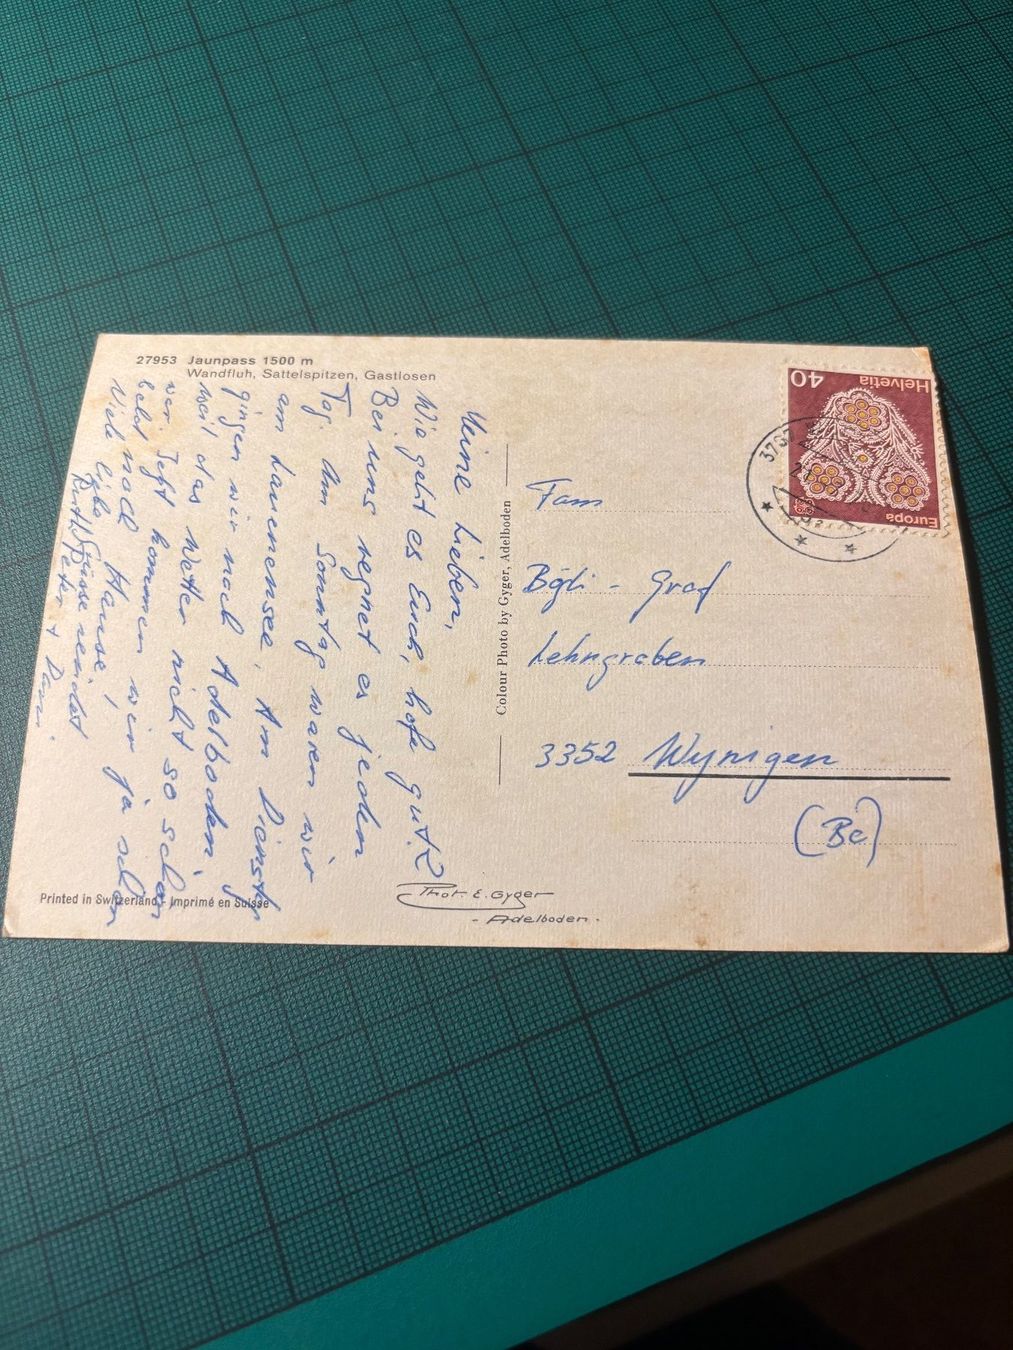 27953 Jaunpass 1500 m
Wandfluh, Sattelspitzen, Gastlosen
Meine Lieben,
Wie geht es Euch, hofe gut?
Bei uns regnet es jeden
Tag. Am Sonntag waren wir
am Lauenensee. Am Dienstag
gingen wir nach Adelboden
weil das Wetter nicht so schön
war. Jetzt kommen wir ja schon
bald nach Hause,
Viele liebe Grüsse sendet
Ruth, Peter + Dani.
Printed in Switzerland - Imprimé en Suisse
Colour Photo by Gyger, Adelboden
Phot. E. Gyger
- Adelboden -
40
Helvetia
Europa
Fam
Bögli - Graf
Lehngraben
3352 Wynigen
(Be)